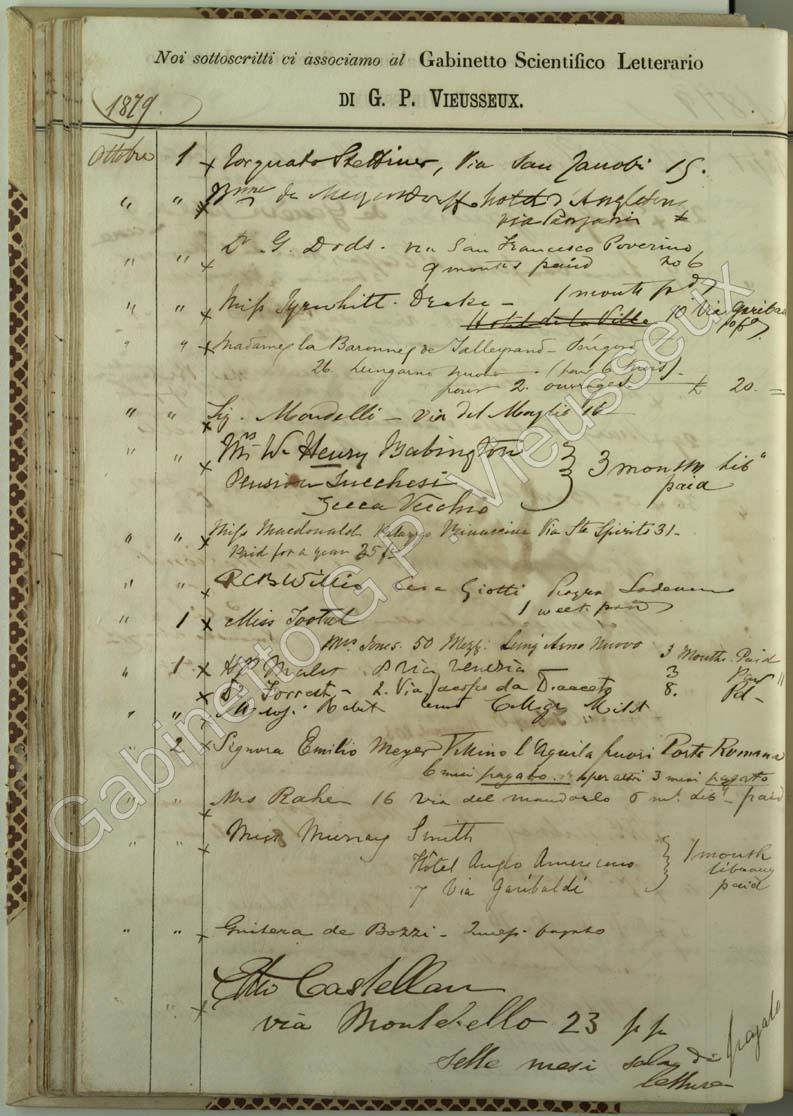 Noi sottoscritti ci associamo al Gabinetto Scientifico Letterario
DI G. P. VIEUSSEUX.
1879
Ottobre 1 x Torquato Stettiner, Via San Zanobi 15.
" " x Mme de Meyendorff hotel d'Angleterre
" " x Dr. G. Dods. via San Francesco Poverino
9 months paid no 6
" " x Miss Tyrwhitt-Drake - 1 month pd
Hotel de la Ville 10 Via Garibaldi
" " x Madame la Baronne de Talleyrand-Périgord
26 Lungarno nuovo - 6 mois)
pour 2 ouvrages 20. =
" " x Sig. Mondelli - Via del Maglio 16
" " x Mrs W. Henry Babington
Pension Lucchesi
Zecca Vecchia
3 months lib
paid
" " x Miss Macdonald Palazzo Via Sto Spirito 31-
Paid for a year 35 f
" " x R C B Willis Casa Giotti Piazza
1 week paid
" 1 x Miss Tootal
Miss Jones. 50 Mezz. Lung'Arno Nuovo 3 Months. Paid
" 1 x 8 Via Venezia 3
x Dr Forrest - 2. Via Jacopo da Diacceto 8. Pd-
" "
" 2 x Signora Emilio Meyer l'Aquila fuori Porta Romana
6 mesi pagato per altri 3 mesi pagato
" " x Mrs 16 Via del mandorlo 6 lib - paid
" " x Miss Murray Smith
Hôtel Anglo Americano
7 Via Garibaldi
1 month
library
paid
" " x Guitera de Bozzi - 2 mesi pagato
x Castellan
via Montebello 23 pp
sette mesi sala di
lettura
pagato
Gabinetto G.P. Vieusseux